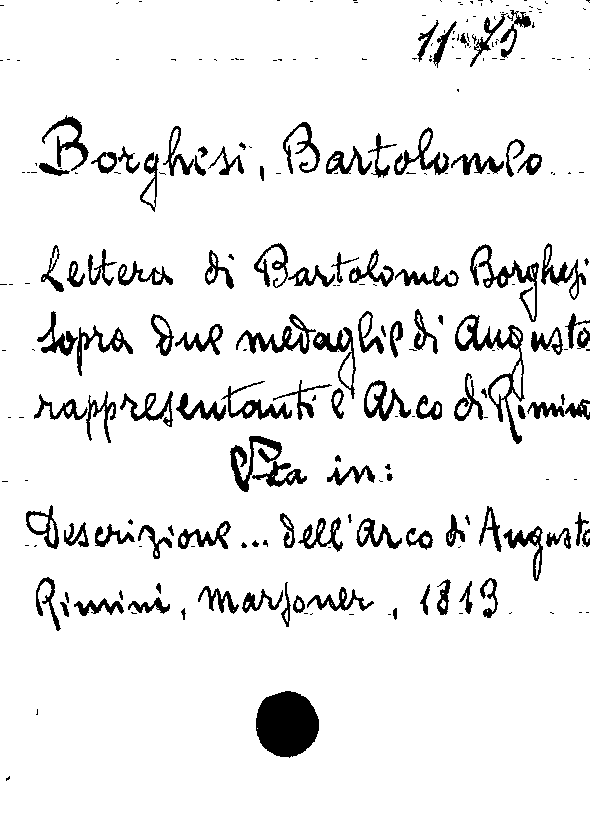 11
Borghesi, Bartolomeo
Lettera di Bartolomeo Borghesi
sopra due medaglie di Augusto
rappresentanti l'Arco di Rimini
Sta in:
Descrizione... dell'Arco di Augusto
Rimini, Marsoner, 1813